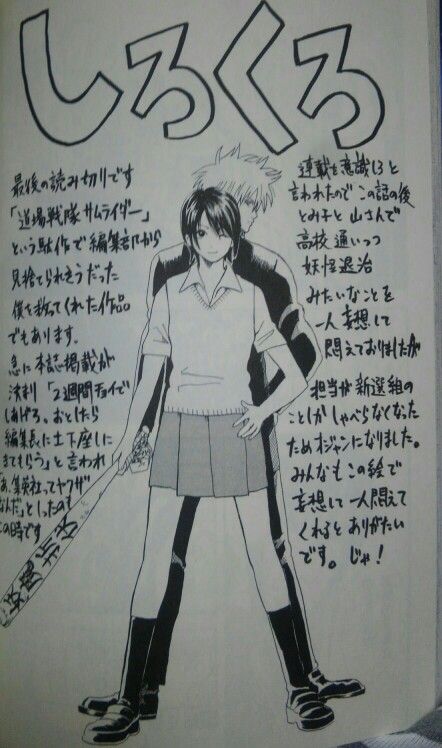 しろくろ
最後の読み切りです
「道場戦隊サムライダー」
という駄作で編集部から
見捨てられそうだった
僕を救ってくれた作品
でもあります。
急に本誌掲載が
決まり「2週間チョイで
しあげろ。おとしたら
編集長に土下座しに
きてもらう」と言われ
「あ、集英社ってヤクザ
なんだ」としったのも
この時です
連載を意識しろと
言われたのでこの話の後
とみ子と山さんで
高校通いつつ
妖怪退治
みたいなことを
一人妄想して
悶えておりましたが
担当が新選組の
ことしかしゃべらなくなった
ためオジャンになりました。
みんなもこの絵で
妄想して一人悶えて
くれるとありがたい
です。じゃ!